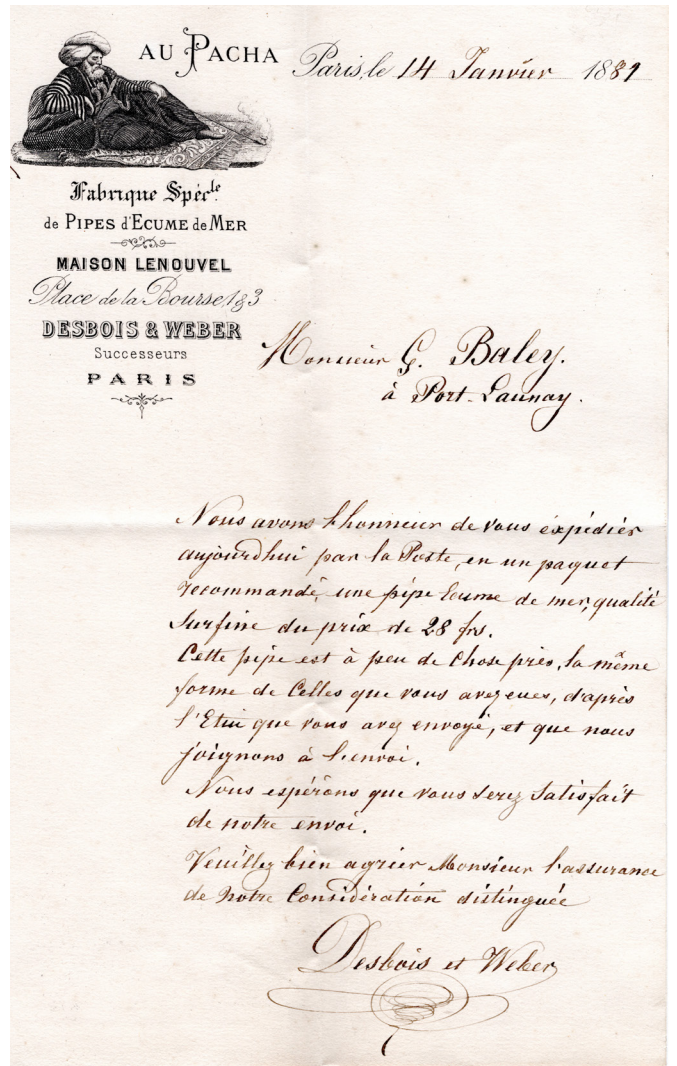 AU PACHA
Paris, le 14 Janvier 1881
Fabrique Spéc.le
de PIPES d'ECUME de MER
MAISON LENOUVEL
Place de la Bourse 1 & 3
DESBOIS & WEBER
Successeurs
PARIS
Monsieur G. Baley.
à Port-Launay.
Nous avons l'honneur de vous éxpédier
aujourd'hui par la Poste, en un paquet
recommandé, une pipe Ecume de mer, qualité
Surfine du prix de 28 frs.
Cette pipe est à peu de Chose près, la même
forme de Celles que vous avez eues, d'après
l'Etui que vous avez envoyé, et que nous
joignons à l'envoi.
Nous espérons que vous serez Satisfait
de notre envoi.
Veuillez bien agréer Monsieur l'assurance
de Notre Considération distinguée
Desbois et Weber